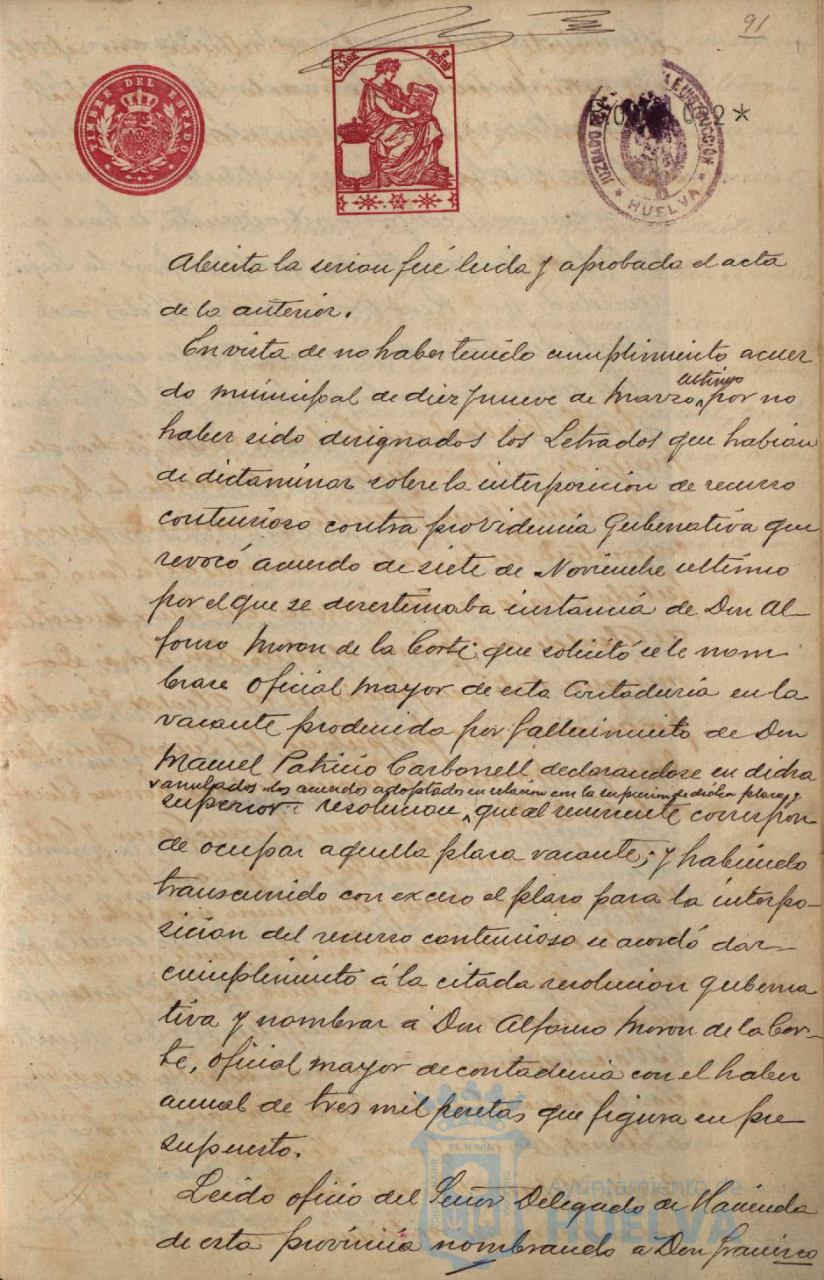 91
TIMBRE DEL ESTADO
7ª CLASE
PESETAS
JUZGADO DE INSTRUCCIÓN
HUELVA
Abierta la sesion fué leida y aprobada el acta
de la anterior.
En vista de no haber tenido cumplimiento acuer
do municipal de diez y nueve de Marzo último por no
haber sido designados los Letrados que habian
de dictaminar sobre la interposición de recurso
contencioso contra providencia Gubernativa que
revocó acuerdo de siete de Noviembre ultimo
por el que se desestimaba instancia de Don Al-
fonso Moron de la Corte que solicitó se le nom
brase Oficial Mayor de esta Contaduria en la
vacante producida por fallecimiento de Don
Manuel Patricio Carbonell, declarandose en dicha
anulados los acuerdos adoptados en relacion con la de dicha plaza y
superior resolucion, que al recurrente correspon
de ocupar aquella plaza vacante; y habiendo
transcurrido con exceso el plazo para la interpo-
sicion del recurso contencioso se acordó dar
cumplimiento á la citada resolucion guberna
tiva y nombrar á Don Alfonso Moron de la Cor-
te, oficial mayor de contaduria con el haber
anual de tres mil pesetas que figura en pre
supuesto.
Leido oficio del Señor Delegado de Hacienda
de esta provincia nombrando a Don Francisco
Ayuntamiento de
HUELVA